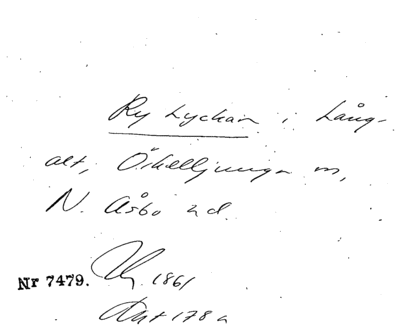 Ry Lyckan i Lång-
alt, Örkelljunga sn,
N. Åsbo hd.
Nr 7479. 1861
Akt 178 a